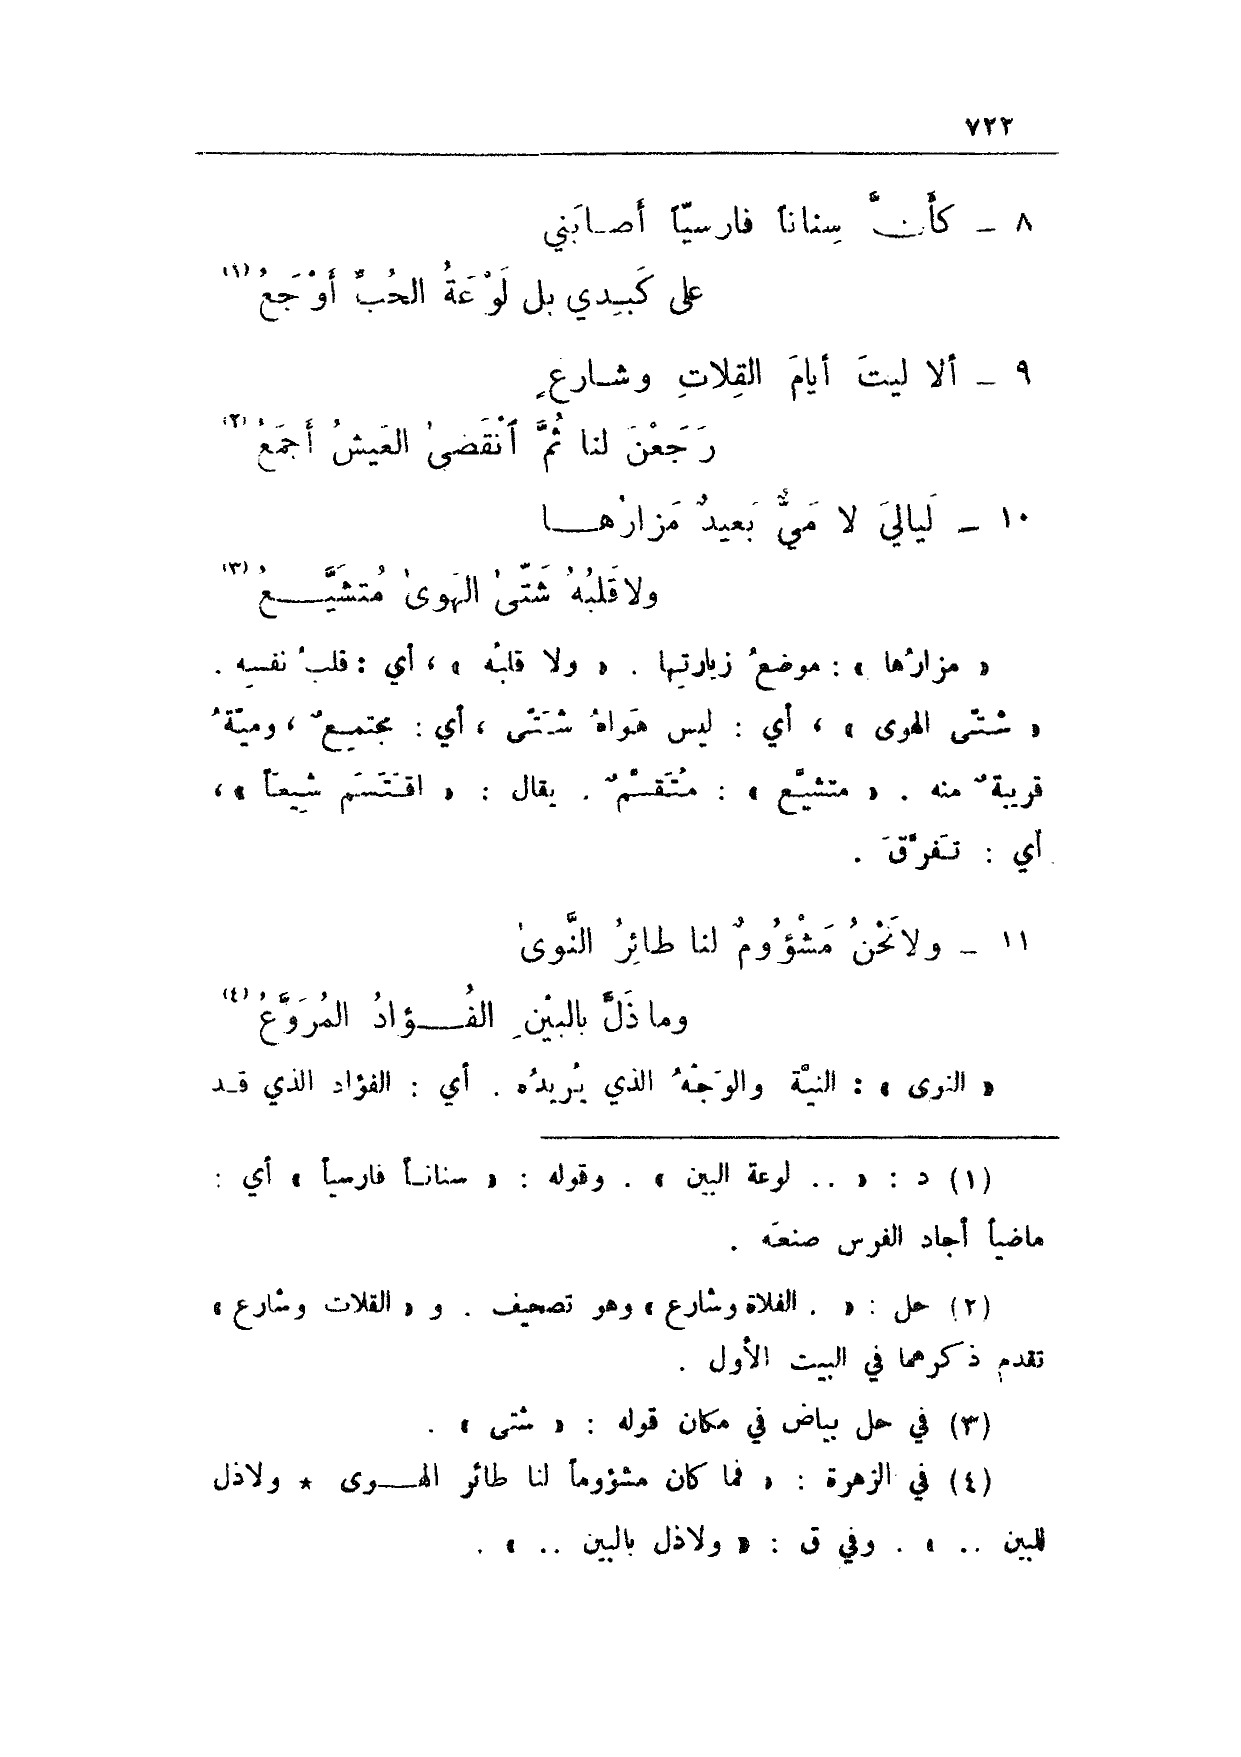 ٧٢٢
٨ ـ كأَنَّ سِناناً فارسيّاً أصـابَني
على كَبـِدي بل لَوْعَةُ الحُبِّ أَوْجَعُ (١)
٩ ـ ألا ليتَ أيامَ القِلاتِ وشـارعٍ
رَجَعْنَ لنا ثُمَّ ٱنْقَضىٰ العَيشُ أَجمَعُ (٢)
١٠ ـ لَياليَ لا مَيٌّ بَعيدٌ مَزارُهـــا
ولا قَلبُهُ شَتّىٰ الهَوىٰ مُتشَيَّـــعُ (٣)
« مزارُها » : موضعُ زيارتِها . « ولا قلبُه » ، أي : قلبُ نفسِه .
« شـتّى الهوى » ، أي : ليس هَواهُ شَتّى ، أي : مجتمِعٌ ، وميّةُ
قريبةٌ منه . « متشيّع » : مُتَقسّمٌ . يقال : « اقتَسَم شِيعاً » ،
أي : تَفرّقَ .
١١ ـ ولا نَحْنُ مَشْؤُومٌ لنا طائِرُ النَّوىٰ
وما ذَلَّ بالبَيْنِ الفُـــؤادُ المُرَوَّعُ (٤)
« النوى » : النيّة والوَجْهُ الذي يُريدُه . أي : الفؤاد الذي قـد
(١) د : « .. لوعة البين » . وقوله : « سناناً فارسياً » أي :
ماضياً أجاد الفرس صنعَه .
(٢) حل : « . الفلاة وشارع » وهو تصحيف . و « القلات وشارع »
تقدم ذكرهما في البيت الأول .
(٣) في حل بياض في مكان قوله : « شتى » .
(٤) في الزهرة : « فما كان مشؤوماً لنا طائر الهــوى * ولا ذل
للبين .. » . وفي ق : « ولا ذل بالبين .. » .